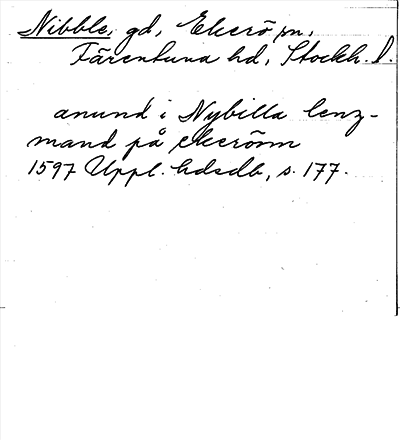 Nibble, gd, Ekerö sn,
Färentuna hd, Stockh. l.
anund i Nybilla lenz-
mand på ekerönn
1597 Uppl. hdsdb, s. 177.